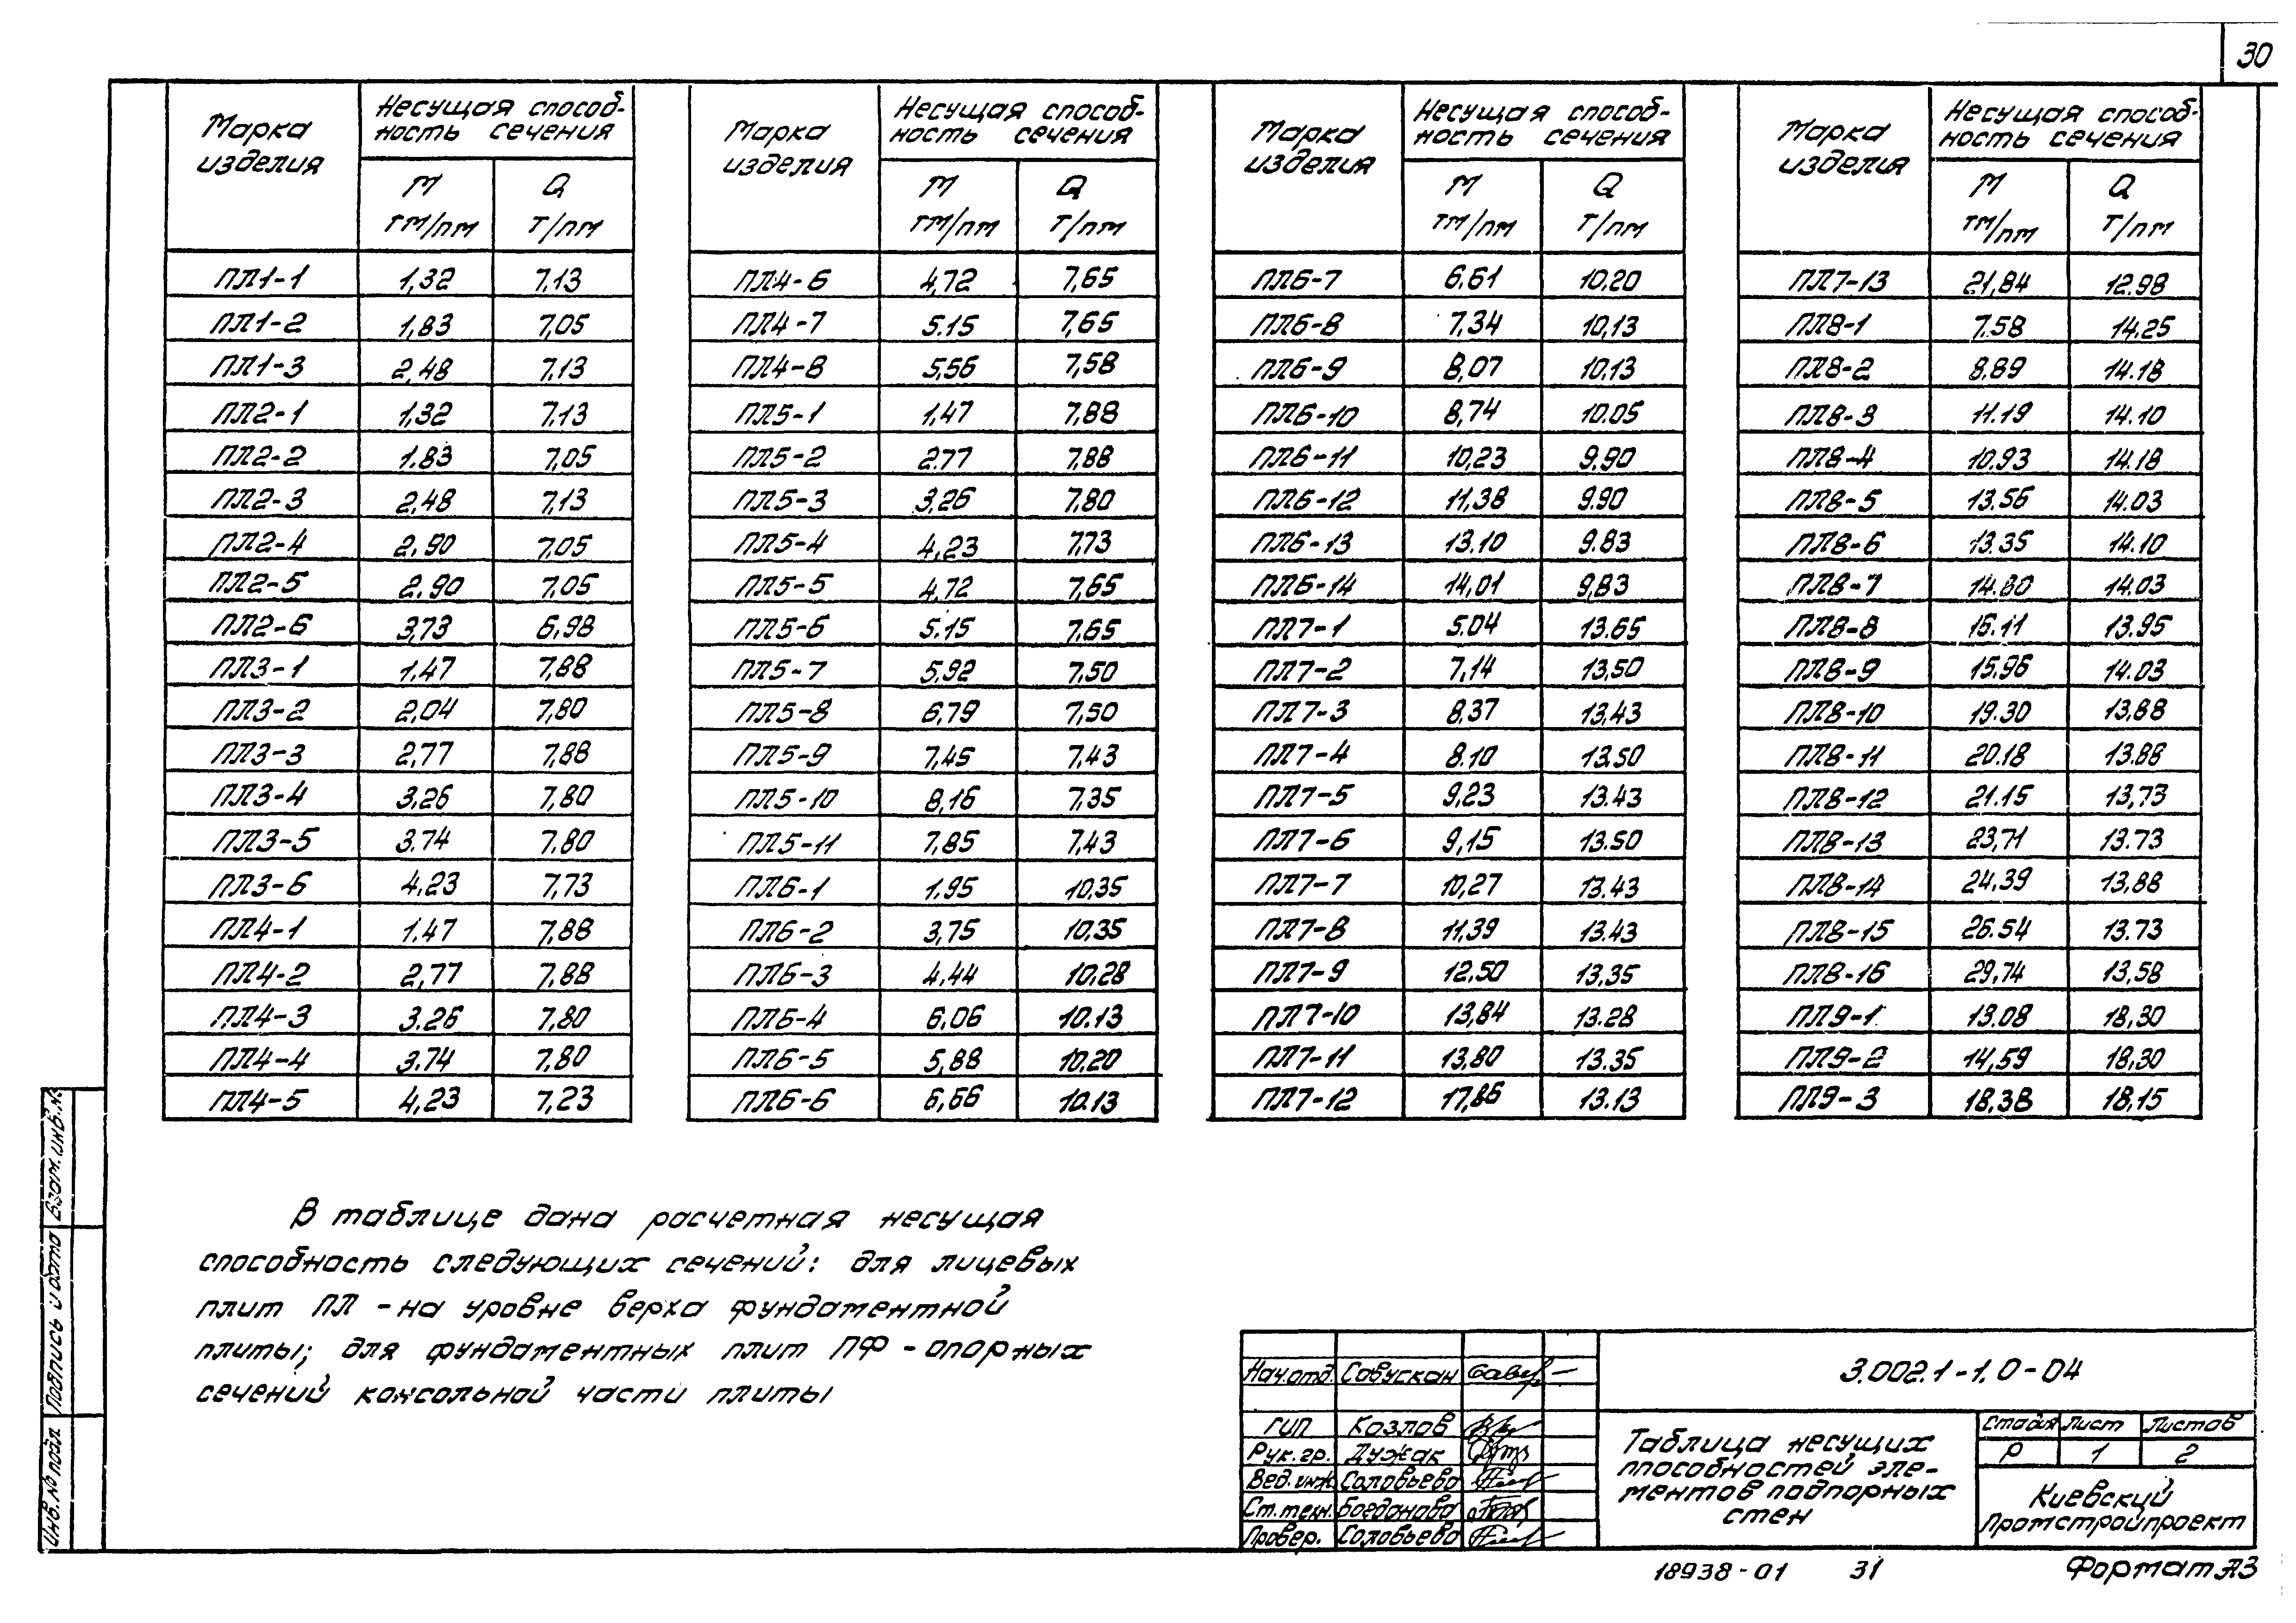 30
Марка изделия | Несущая способ-ность сечения | Марка изделия | Несущая способ-ность сечения | Марка изделия | Несущая способ-ность сечения | Марка изделия | Несущая способ-ность сечения
М тм/пм | Q т/пм | М тм/пм | Q т/пм | М тм/пм | Q т/пм | М тм/пм | Q т/пм
ПЛ1-1 1,32 7,13 ПЛ4-6 4,72 7,65 ПЛ6-7 6,61 10,20 ПЛ7-13 21,84 12.98
ПЛ1-2 1,83 7,05 ПЛ4-7 5.15 7,65 ПЛ6-8 7,34 10,13 ПЛ8-1 7.58 14.25
ПЛ1-3 2,48 7,13 ПЛ4-8 5,56 7,58 ПЛ6-9 8,07 10.13 ПЛ8-2 8.89 14.18
ПЛ2-1 1,32 7,13 ПЛ5-1 1,47 7,88 ПЛ6-10 8,74 10.05 ПЛ8-3 11.19 14.10
ПЛ2-2 1.83 7,05 ПЛ5-2 2.77 7,88 ПЛ6-11 10,23 9.90 ПЛ8-4 10.93 14.18
ПЛ2-3 2,48 7,13 ПЛ5-3 3,26 7,80 ПЛ6-12 11,38 9.90 ПЛ8-5 13.56 14.03
ПЛ2-4 2,90 7,05 ПЛ5-4 4,23 7,73 ПЛ6-13 13.10 9.83 ПЛ8-6 13.35 14.10
ПЛ2-5 2.90 7,05 ПЛ5-5 4,72 7,65 ПЛ6-14 14,01 9,83 ПЛ8-7 14.80 14.03
ПЛ2-6 3,73 6,98 ПЛ5-6 5.15 7,65 ПЛ7-1 5.04 13.65 ПЛ8-8 16.11 13.95
ПЛ3-1 1.47 7,88 ПЛ5-7 5,92 7,50 ПЛ7-2 7,14 13,50 ПЛ8-9 15.96 14.03
ПЛ3-2 2,04 7,80 ПЛ5-8 6,79 7,50 ПЛ7-3 8,37 13,43 ПЛ8-10 19.30 13,88
ПЛ3-3 2,77 7,88 ПЛ5-9 7,45 7,43 ПЛ7-4 8.10 13.50 ПЛ8-11 20.18 13.88
ПЛ3-4 3,26 7,80 ПЛ5-10 8,16 7,35 ПЛ7-5 9,23 13.43 ПЛ8-12 21.15 13,73
ПЛ3-5 3.74 7.80 ПЛ5-11 7,85 7,43 ПЛ7-6 9,15 13.50 ПЛ8-13 23,71 13.73
ПЛ3-6 4,23 7,73 ПЛ6-1 1.95 10,35 ПЛ7-7 10,27 13.43 ПЛ8-14 24,39 13,88
ПЛ4-1 1.47 7,88 ПЛ6-2 3,75 10.35 ПЛ7-8 11,39 13.43 ПЛ8-15 26.54 13.73
ПЛ4-2 2,77 7,88 ПЛ6-3 4,44 10,28 ПЛ7-9 12,50 13,35 ПЛ8-16 29,74 13,58
ПЛ4-3 3.26 7,80 ПЛ6-4 6,06 10.13 ПЛ7-10 13,84 13.28 ПЛ9-1 13.08 18,30
ПЛ4-4 3.74 7,80 ПЛ6-5 5,88 10.20 ПЛ7-11 13,80 13.35 ПЛ9-2 14,59 18,30
ПЛ4-5 4,23 7,23 ПЛ6-6 6,66 10.13 ПЛ7-12 17,86 13.13 ПЛ9-3 18,38 18,15
В таблице дана расчетная несущая
способность следующих сечений: для лицевых
плит ПЛ - на уровне верха фундаментной
плиты; для фундаментных плит ПФ - опорных
сечений консольной части плиты
Инв. № подл Подпись и дата Взам. инв. №
Нач.отд. Савускан
ГИП Козлов
Рук.гр. Дужак
Вед.инж Соловьева
Ст.техн. Богданова
Провер. Соловьева
3.002.1-1.0-04
Таблица несущих
способностей эле-
ментов подпорных
стен
Стадия Лист Листов
Р 1 2
Киевский
Промстройпроект
18938-01 31 Формат А3